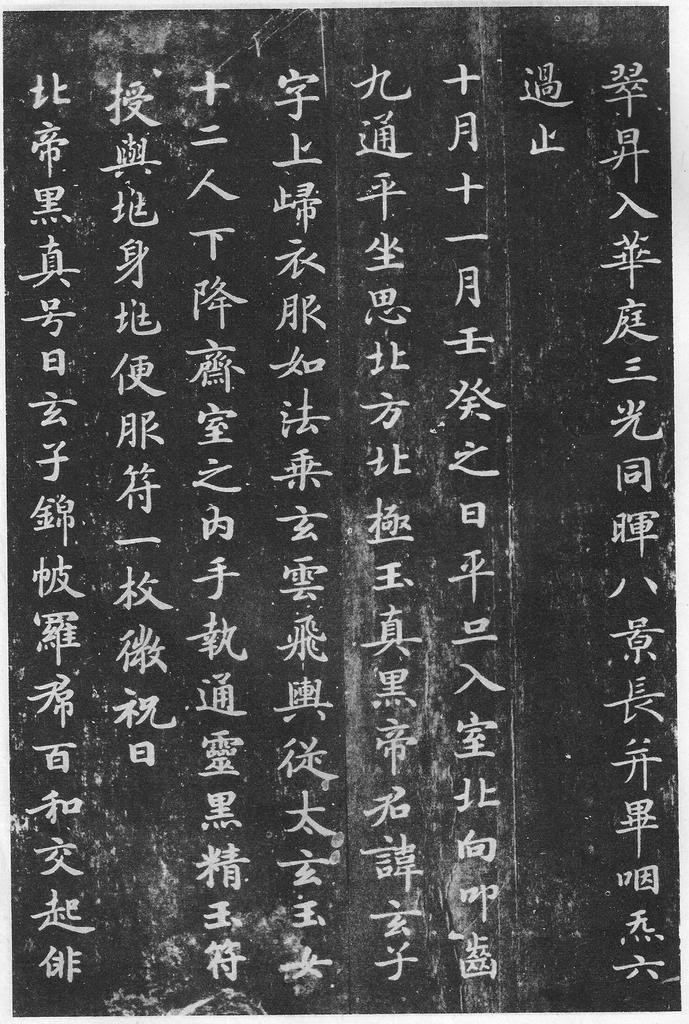 翠昇入華庭三光同暉八景長并畢咽炁六
過止
十月十一月壬癸之日平旦入室北向叩齒
九通平坐思北方北極玉真黑帝君諱玄子
字上歸衣服如法乘玄雲飛輿從太玄玉女
十二人下降齋室之内手執通靈黑精玉符
授與兆身兆便服符一枚微祝曰
北帝黑真号曰玄子錦帔羅帬百和交起俳